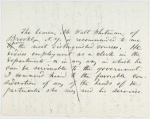 The bearer, Mr Walt Whitman, of
Brooklyn, N.Y., is recommended to me
the most distinguished sources. He
desires employment as a clerk in the
Departments or in any way in which he
can be serviceable to the government.
I commend him to the favorable con-
sideration of any of the heads of De-
partments who may need his services.